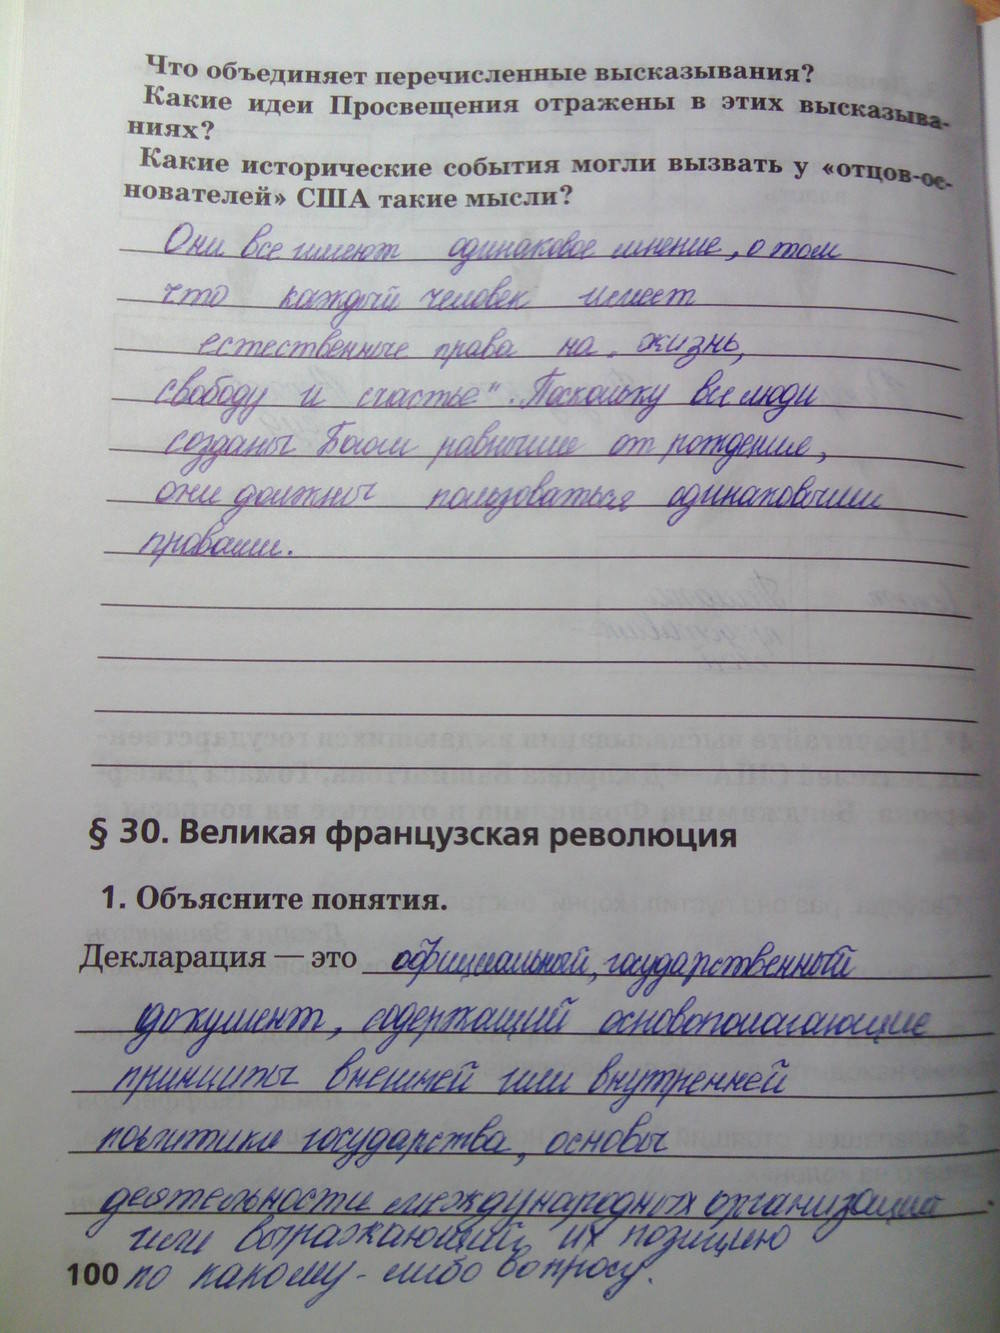 Что объединяет перечисленные высказывания?
Какие идеи Просвещения отражены в этих высказыва-
ниях?
Какие исторические события могли вызвать у «отцов-ос-
нователей» США такие мысли?
Они все имеют одинаковое мнение, о том
что каждый человек имеет
естественные права на „жизнь,
свободу и счастье". Поскольку все люди
созданы Богом равными от рождения,
они должны пользоваться одинаковыми
правами.
§ 30. Великая французская революция
1. Объясните понятия.
Декларация — это официальный, государственный
документ, содержащий основополагающие
принципы внешней или внутренней
политики государства, основы
деятельности международных организаций
или выражающий их позицию
100 по какому-либо вопросу.